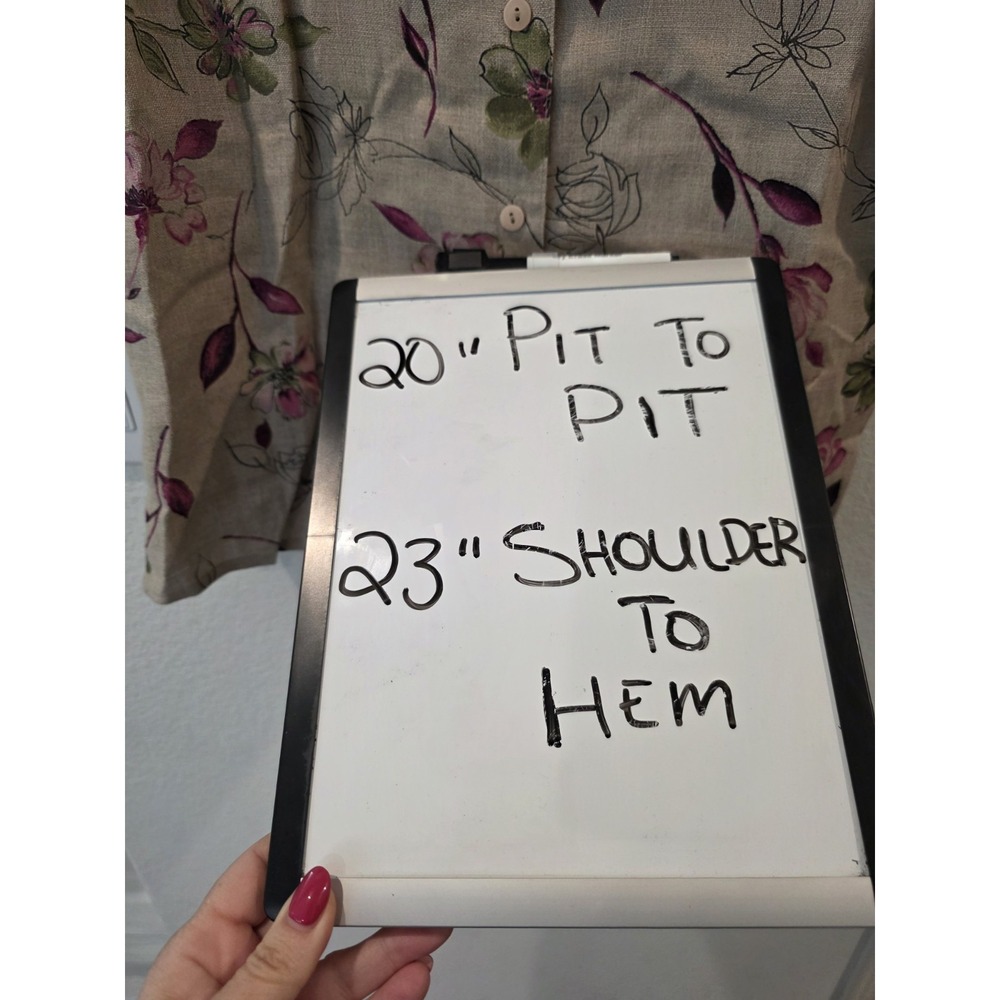 20" PIT TO
PIT
23" SHOULDER
TO
HEM